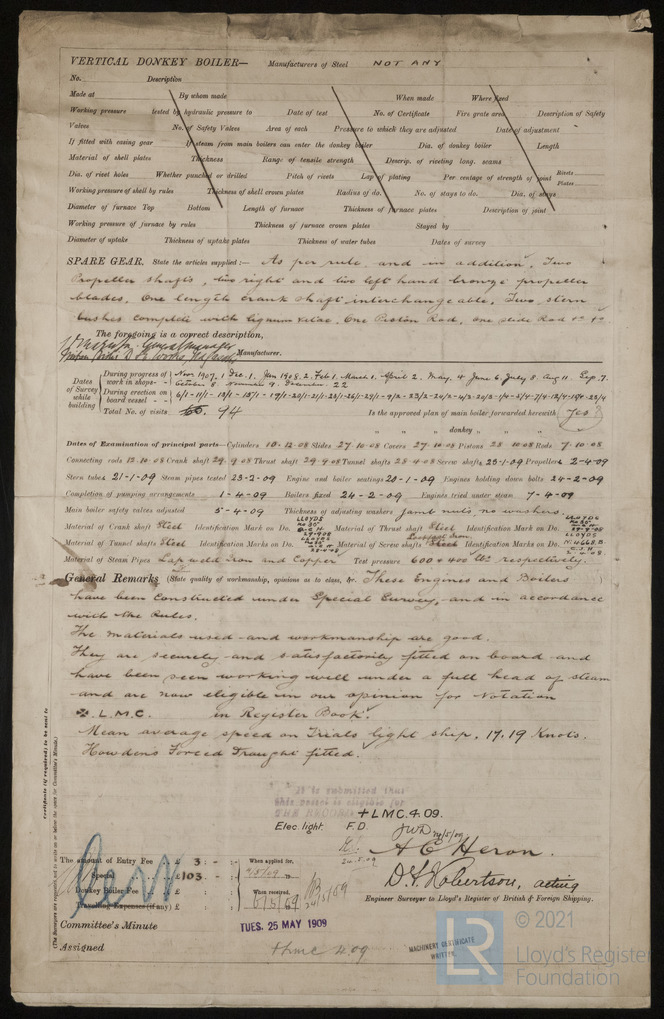 VERTICAL DONKEY BOILER— Manufacturers of Steel NOT ANY
No. Description
Made at By whom made When made Where fixed
Working pressure tested by hydraulic pressure to Date of test No. of Certificate Fire grate area Description of Safety
Valves No. of Safety Valves Area of each Pressure to which they are adjusted Date of adjustment
If fitted with easing gear If steam from main boilers can enter the donkey boiler Dia. of donkey boiler Length
Material of shell plates Thickness Range of tensile strength Descrip. of riveting long. seams
Dia. of rivet holes Whether punched or drilled Pitch of rivets Lap of plating Per centage of strength of joint Rivets Plates
Working pressure of shell by rules Thickness of shell crown plates Radius of do. No. of stays to do. Dia. of stays
Diameter of furnace Top Bottom Length of furnace Thickness of furnace plates Description of joint
Working pressure of furnace by rules Thickness of furnace crown plates Stayed by
Diameter of uptake Thickness of uptake plates Thickness of water tubes Dates of survey
SPARE GEAR. State the articles supplied:— As per rule, and in addition, Two
Propeller shafts, two right and two left hand bronze propeller
blades, One length crank shaft interchangeable, Two stern
bushes complete with lignum vitae, One Piston Rod, one slide Rod
The foregoing is a correct description,
General manager
Manufacturer.
Dates of Survey while building
During progress of work in shops - Nov 1907, 1 Dec. 1. Jan 1908. 2. Feb 1. March 1. April 2. May. 4 June 6. July 8. Aug 11. Sep. 7.
October 8 November 9. December 22
During erection on board vessel -
Total No. of visits 94 Is the approved plan of main boiler forwarded herewith Yes
" " " donkey " " "
Dates of Examination of principal parts—Cylinders 10.12.08 Slides 27.10.08 Covers 27.10.08 Pistons 28.10.08 Rods 7.10.08
Connecting rods 12.10.08 Crank shaft 29.9.08 Thrust shaft 29.9.08 Tunnel shafts 28.9.08 Screw shafts 23-1-09 Propellers 2-4-09
Stern tubes 21-1-09 Steam pipes tested 23-2-09 Engine and boiler seatings 20-1-09 Engines holding bolts 24-2-09
Completion of pumping arrangements 1-4-09 Boilers fixed 24-2-09 Engines tried under steam 7-4-09
Main boiler safety valves adjusted 5-4-09 Thickness of adjusting washers Jamb nuts no washers.
Material of Crank shaft Steel Identification Mark on Do. LLOYDS Material of Thrust shaft Steel Identification Mark on Do. LLOYDS
Material of Tunnel shafts Steel Identification Marks on Do. Material of Screw shafts Identification Marks on Do. LLOYDS
Material of Steam Pipes Lap weld Iron and Copper Test pressure 600 & 400 lbs respectively.
General Remarks (State quality of workmanship, opinions as to class, &c. These Engines and Boilers
have been Constructed under Special Survey, and in accordance
with the Rules.
The materials used and workmanship are good.
They are securely and satisfactorily fitted on board and
have been seen working well under a full head of steam
and are now eligible in our opinion for Notation
✠ .L.M.C. in Register Book.
Mean average speed on Trials light ship, 17.19 Knots.
Howdens Forced Draught fitted.
It is submitted that
this vessel is eligible for
THE RECORD + LMC. 4. 09.
Elec. light. F.D.
The amount of Entry Fee £ 3 : - : When applied for,
Special £ 103 : - :
Donkey Boiler Fee £ : : When received,
Travelling Expenses (if any) £ : :
A C Heron.
D. S. Robertson, acting
Engineer Surveyor to Lloyd's Register of British & Foreign Shipping.
Committee's Minute TUES. 25 MAY 1909
Assigned + LMC 4.09
MACHINERY CERTIFICATE
WRITTEN.
© 2021
LR
Lloyd's Register
Foundation